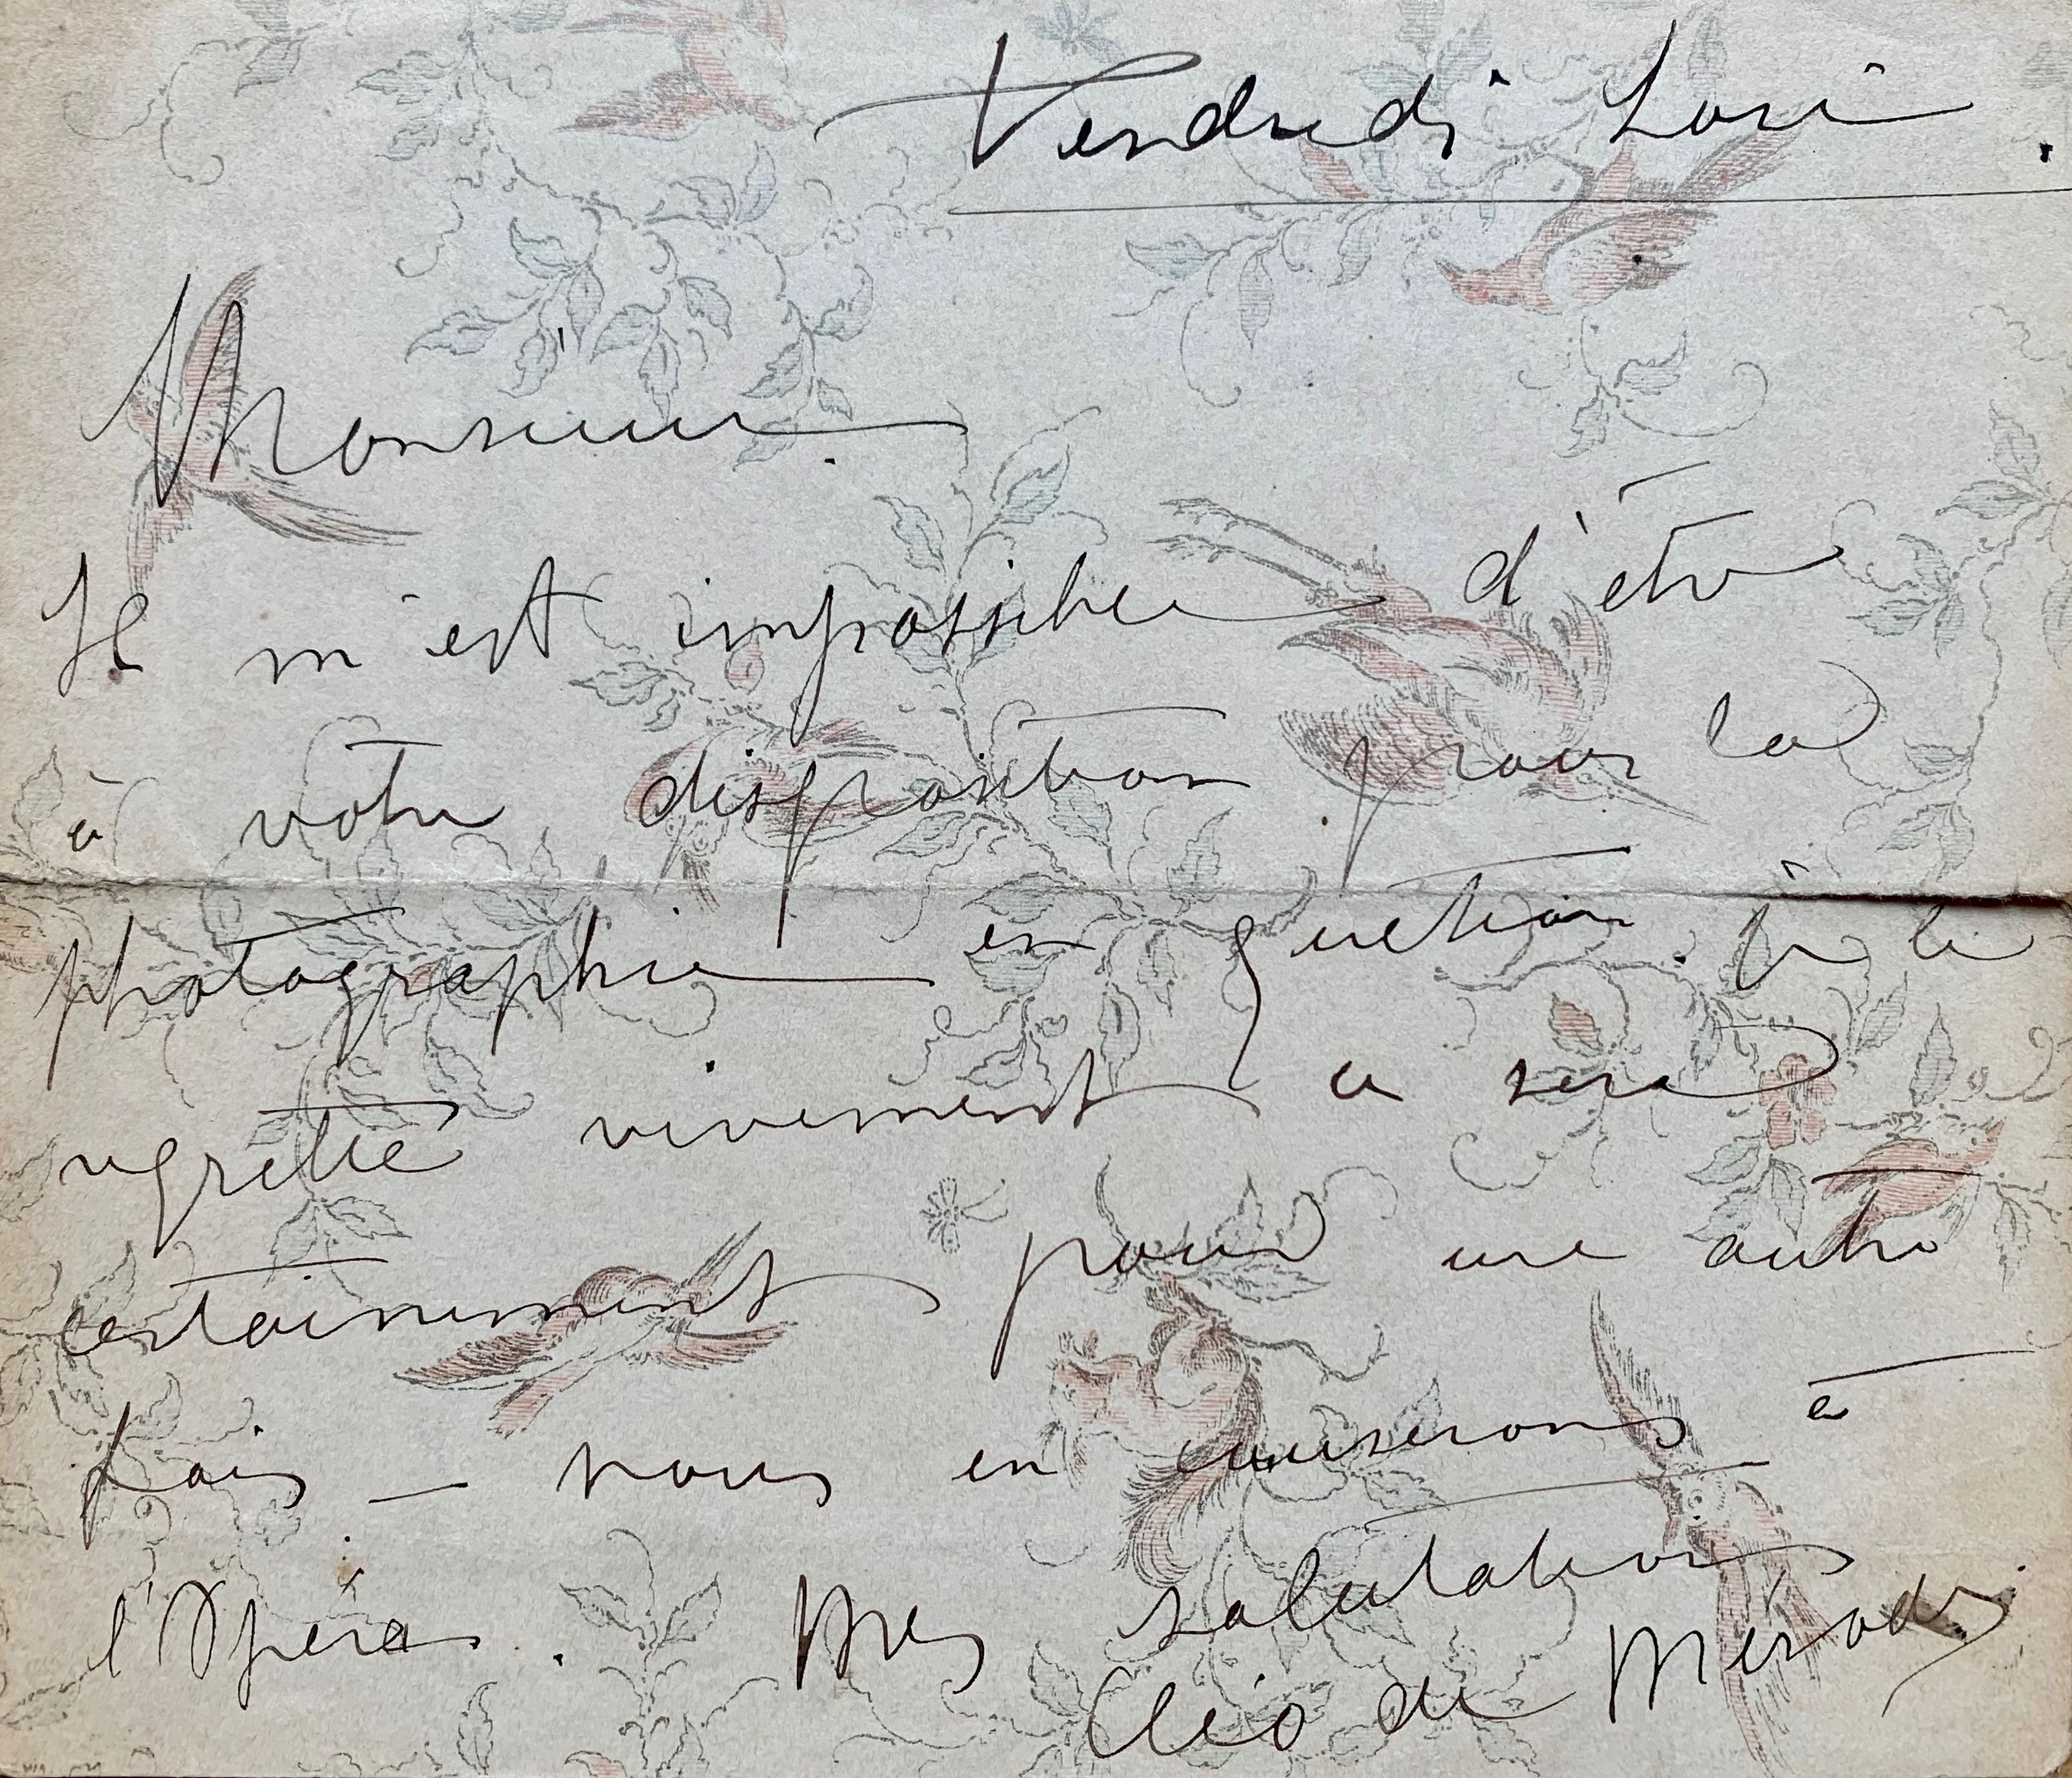 Vendredi Soir.
Monsieur
Il m'est impossible d'être
à votre disposition pour la
photographie en question. Je le
regrette vivement ce sera
certainement pour une autre
fois — nous en causerons à
l'Opéra. Mes salutations
Cléo de Mérode